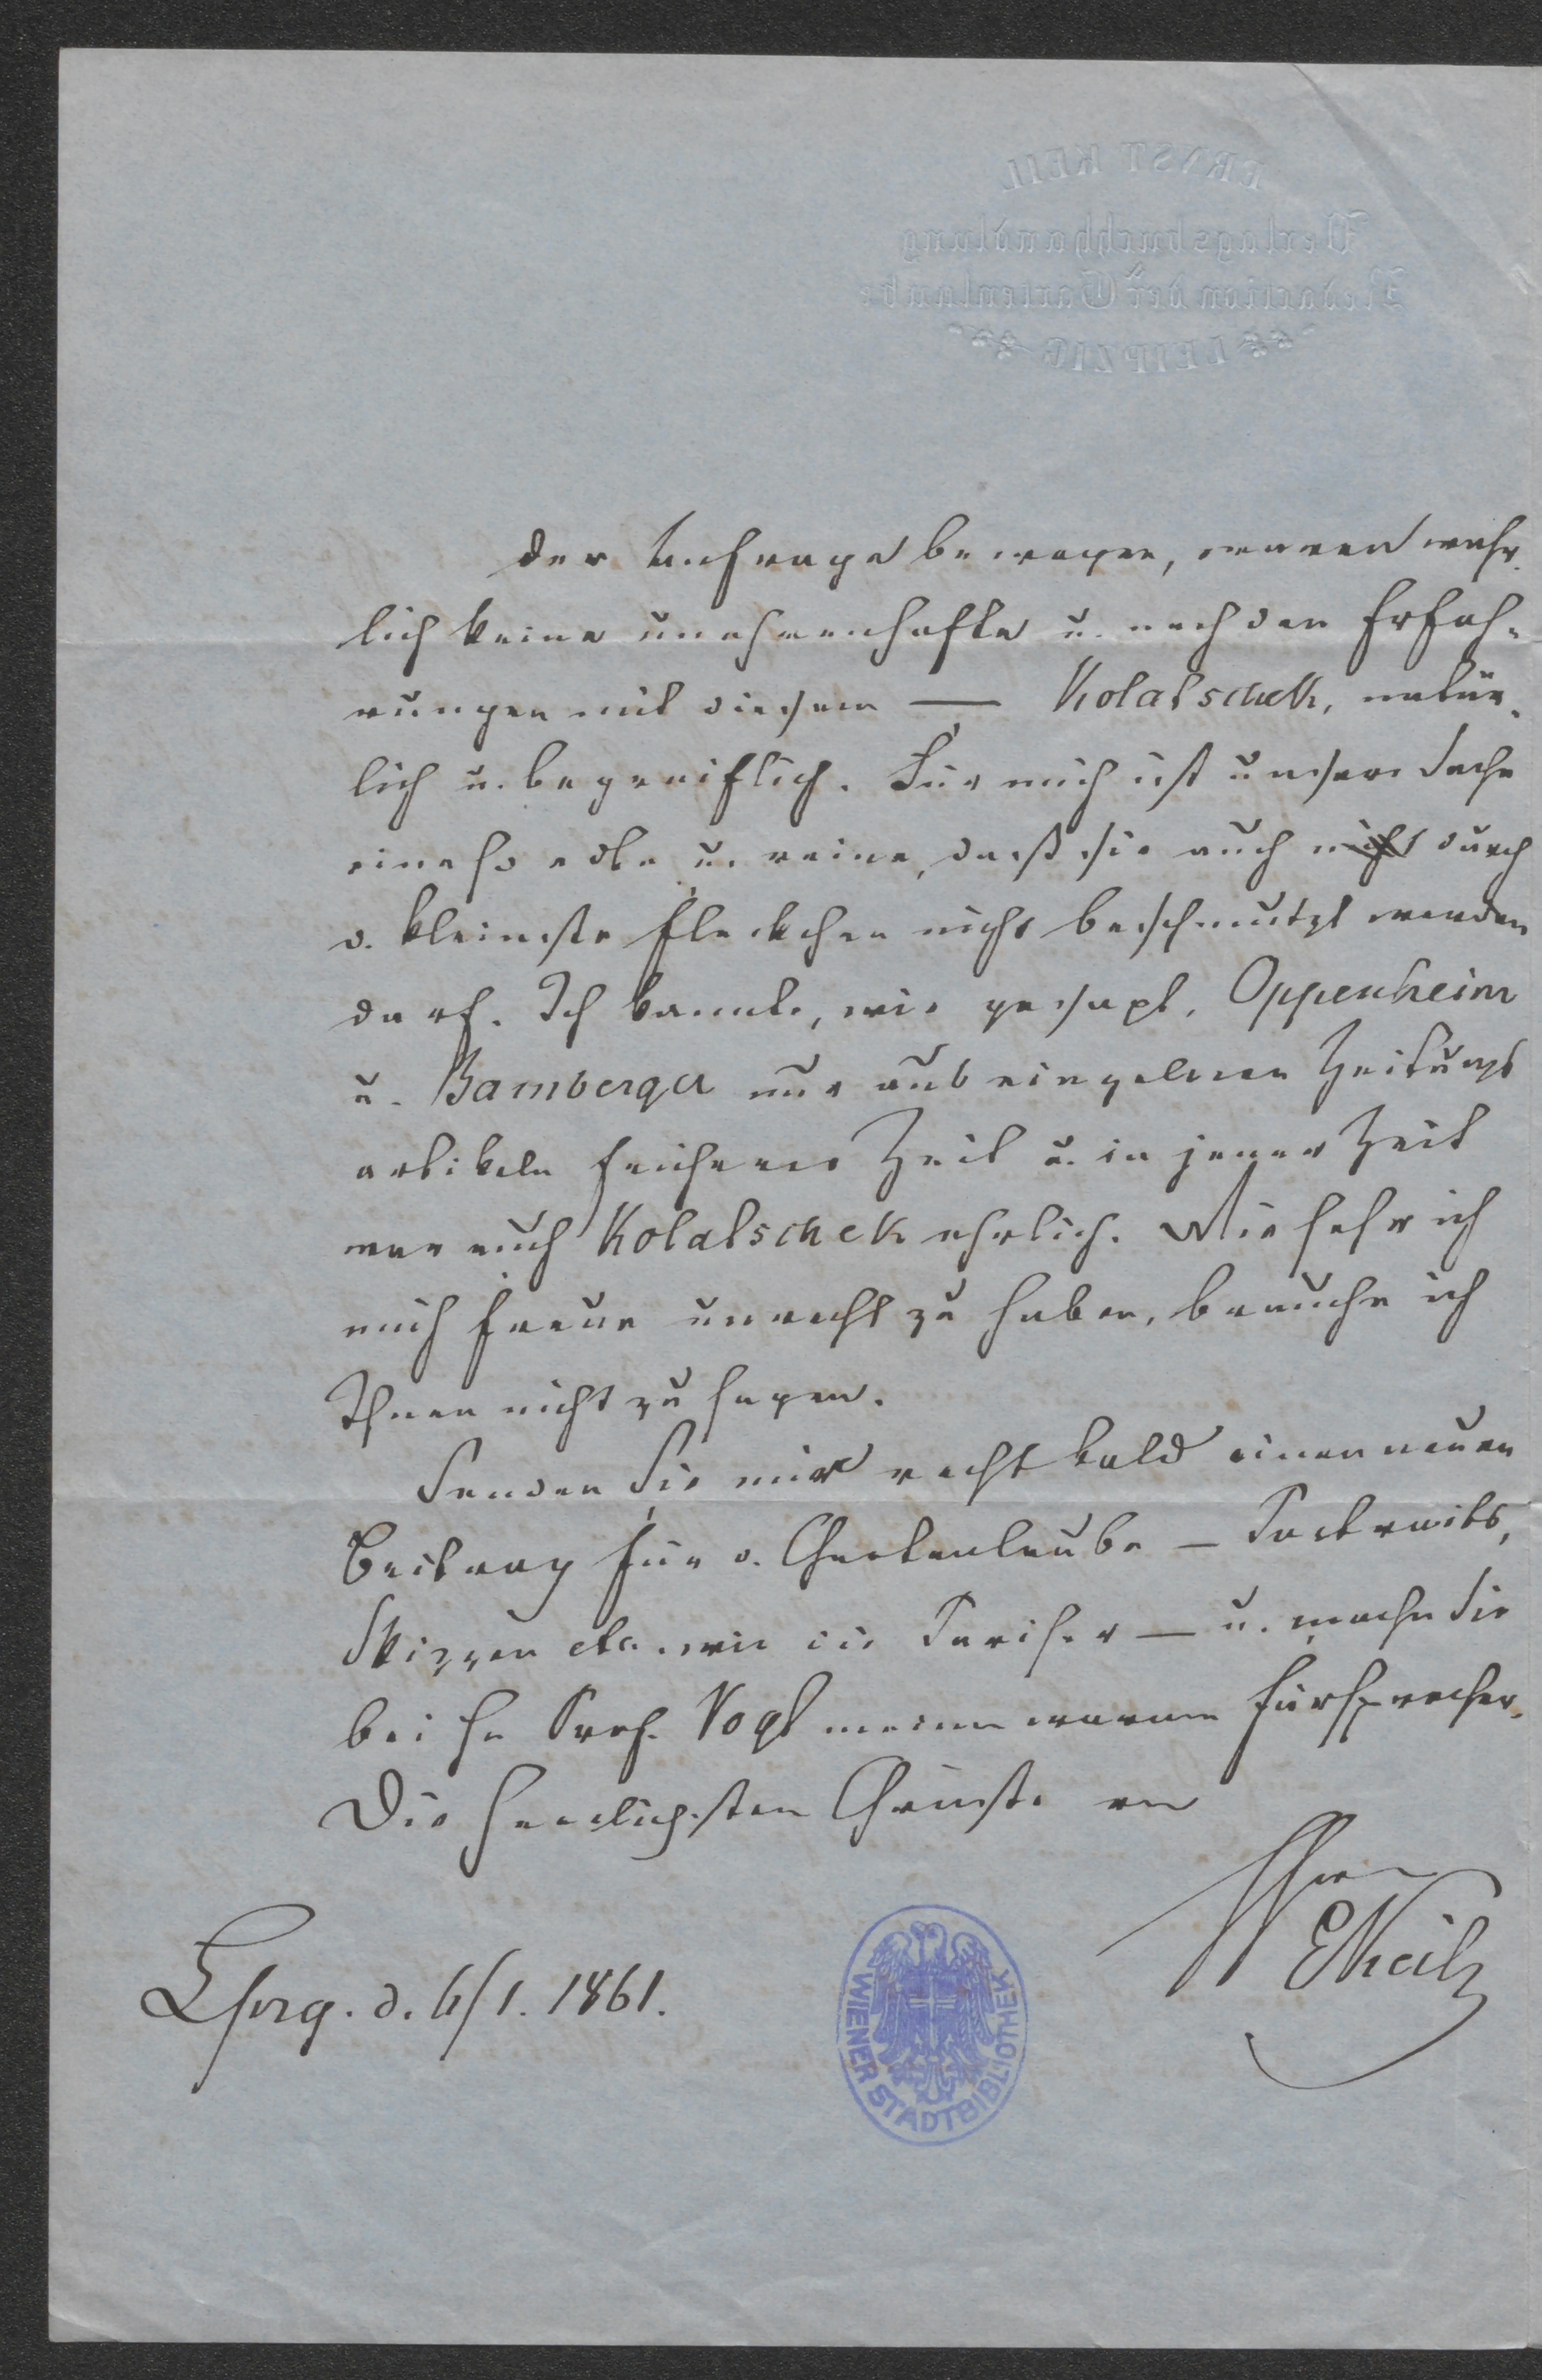 ERNST KEIL
Verlagsbuchhandlung
Redaction der Gartenlaube
LEIPZIG
der Anfrage bewogen, waren wahr-
lich keine unehrenhafte u. nach den Erfah-
rungen mit diesem — Kolatschek, natür-
lich u. begreiflich. Für mich ist unsere Sache
eine so edle u. reine, daß sie auch nicht durch
d. kleinste Fleckchen nicht beschmutzt werden
darf. Ich kannte, wie gesagt, Oppenheim
u. Bamberger nur aus einzelnen Zeitungs
artikeln früherer Zeit u. in jener Zeit
war auch Kolatschek ehrlich. Wie sehr ich
mich freue unrecht zu haben, brauche ich
Ihnen nicht zu sagen.
Senden Sie mir recht bald einen neuen
Beitrag für d. Gartenlaube – Portraits,
Skizzen etc. wie die Pariser – u. machen Sie
bei H Prof. Vogt meinen warmen Fürsprecher.
Die herzlichsten Grüße von
Ihrem
EKeil
Lpzg. d. 6/1. 1861.
WIENER STADTBIBLIOTHEK